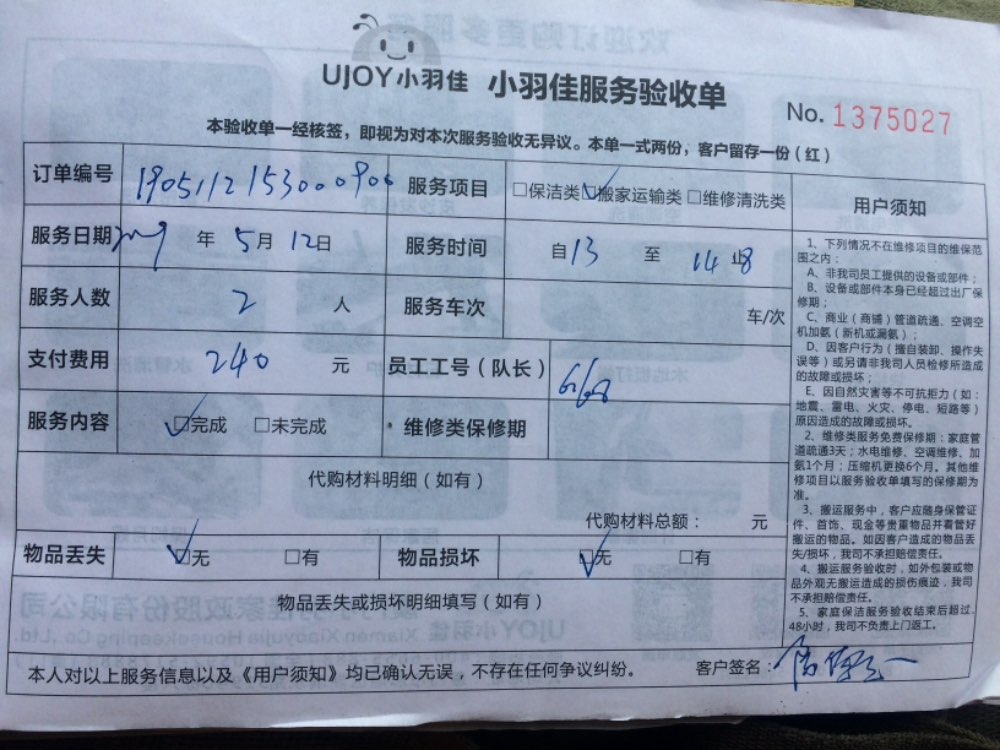 UJOY小羽佳 小羽佳服务验收单
No. 1375027
本验收单一经核签，即视为对本次服务验收无异议。本单一式两份，客户留存一份（红）
订单编号 190511215300090 服务项目 □保洁类 ☑搬家运输类 □维修清洗类
服务日期 2019 年 5 月 12 日 服务时间 自 13 至 14 止
服务人数 2 人 服务车次 车/次
支付费用 240 元 员工工号（队长）
服务内容 ☑完成 □未完成 维修类保修期
代购材料明细（如有）
代购材料总额： 元
物品丢失 ☑无 □有 物品损坏 ☑无 □有
物品丢失或损坏明细填写（如有）
本人对以上服务信息以及《用户须知》均已确认无误，不存在任何争议纠纷。 客户签名：
用户须知
1、下列情况不在维修项目的维保范
围之内：
A、非我司员工提供的设备或部件；
B、设备或部件本身已经超过出厂保
修期；
C、商业（商铺）管道疏通、空调空
机加氨（新机或漏氨）；
D、因客户行为（擅自装卸、操作失
误等）或另请非我司人员检修所造成
的故障或损坏；
E、因自然灾害等不可抗拒力（如：
地震、雷电、火灾、停电、短路等）
原因造成的故障或损坏。
2、维修类服务免费保修期：家庭管
道疏通3天；水电维修、空调维修、加
氨1个月；压缩机更换6个月。其他维
修项目以服务验收单填写的保修期为
准。
3、搬运服务中，客户应随身保管证
件、首饰、现金等贵重物品并看管好
搬运的物品。如因客户造成的物品丢
失/损坏，我司不承担赔偿责任。
4、搬运服务验收时，如外包装或物
品外观无搬运造成的损伤痕迹，我司
不承担赔偿责任。
5、家庭保洁服务验收结束后超过
48小时，我司不负责上门返工。